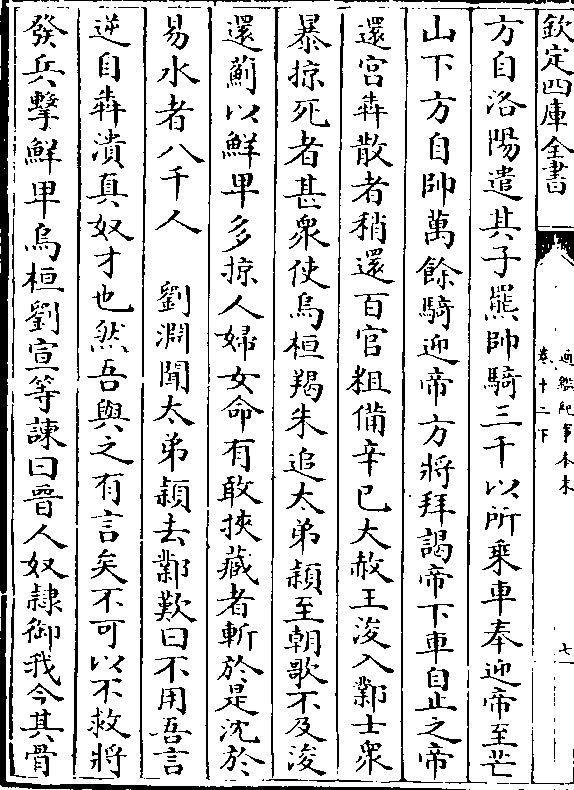 欽定四庫全書
通鑑紀事本末
卷十二下
七
方自洛陽遣其子羆帥騎三千以所乗車奉迎帝至芒
山下方自帥萬餘騎迎帝方將拜謁帝下車自止之帝
還宫犇散者稍還百官粗備辛已大赦王浚入鄴士衆
暴掠死者甚衆使烏桓羯朱追太弟頴至朝歌不及浚
還薊以鮮卑多掠人婦女命有敢挾藏者斬於是沈於
易水者八千人　劉淵聞太弟頴去鄴歎曰不用吾言
逆自犇潰真奴才也然吾與之有言矣不可以不救將
發兵擊鮮卑烏桓劉宣等諫曰晋人奴隷御我今其骨